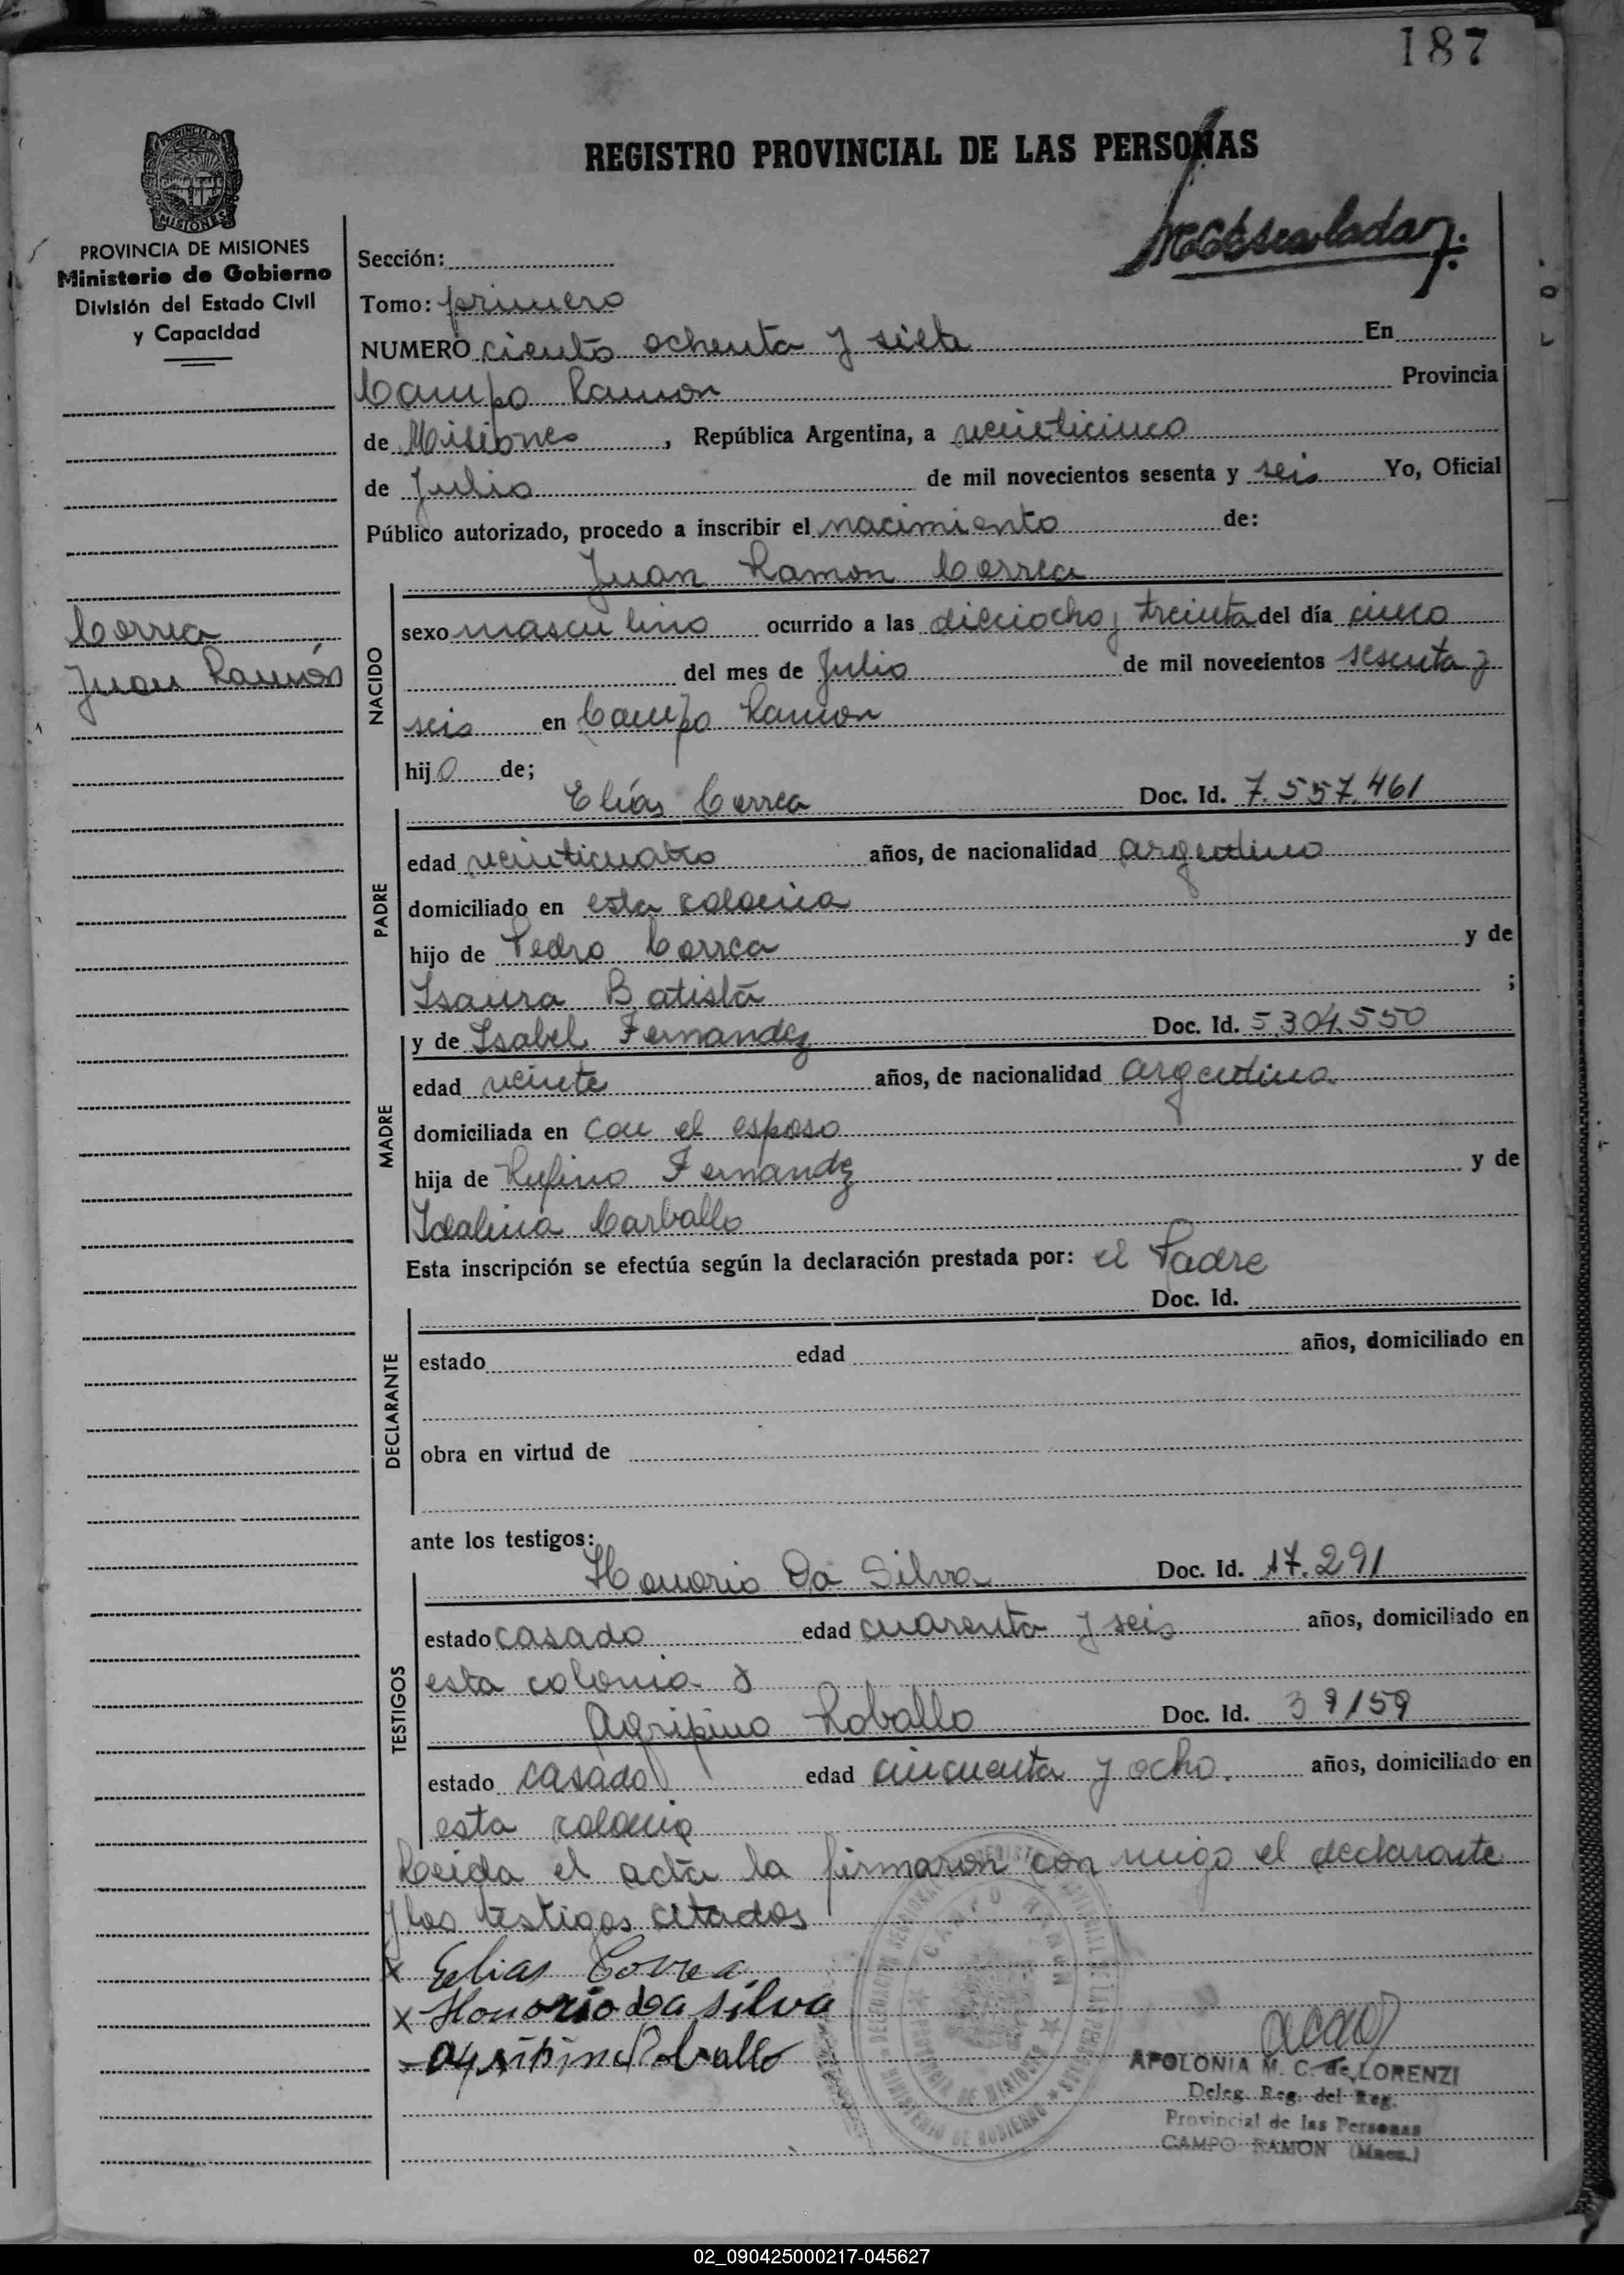 187
REGISTRO PROVINCIAL DE LAS PERSONAS
PROVINCIA DE MISIONES
Ministerio de Gobierno
División del Estado Civil
y Capacidad
Correa
Juan Ramón
Sección:
Tomo: primero
NUMERO ciento ochenta y siete En
Campo Ramon Provincia
de Misiones, República Argentina, a veinticinco
de Julio de mil novecientos sesenta y seis Yo, Oficial
Público autorizado, procedo a inscribir el nacimiento de:
Juan Ramon Correa
NACIDO
sexo masculino ocurrido a las dieciocho y treinta del día cinco
del mes de Julio de mil novecientos sesenta y
seis en Campo Ramon
hijo de;
Elías Correa Doc. Id. 7.557.461
PADRE
edad veinticuatro años, de nacionalidad argentino
domiciliado en esta colonia
hijo de Pedro Correa y de
Isaura Batista ;
y de Isabel Fernandez Doc. Id. 5.304.550
MADRE
edad veinte años, de nacionalidad argentina
domiciliada en con el esposo
hija de Rufino Fernandz y de
Idalina Carballo
Esta inscripción se efectúa según la declaración prestada por: el Padre
Doc. Id.
DECLARANTE
estado edad años, domiciliado en
obra en virtud de
ante los testigos:
Honorio Da Silva Doc. Id. 17.291
TESTIGOS
estado casado edad cuarenta y seis años, domiciliado en
esta colonia y
Agripino Roballo Doc. Id. 39159
estado casado edad cincuenta y ocho. años, domiciliado en
esta colonia
Leida el acta la firmaron con migo el declarante
y los testigos citados
x Elias Correa
x Honorio da silva
Agripino Roballo
CAMPO RAMON
PROVINCIA DE MISIONES
MINISTERIO DE GOBIERNO
APOLONIA M. C. de LORENZI
Deleg. Reg. del Reg.
Provincial de las Personas
CAMPO RAMON (Mnes.)
02_090425000217-045627